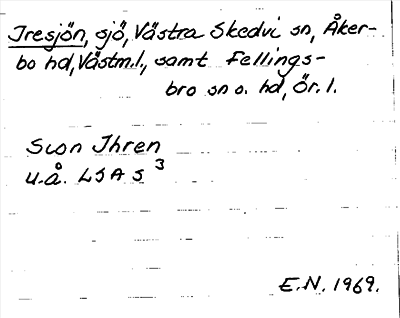 Iresjön, sjö, Västra Skedvi sn, Åker-
bo hd, Västm.l., samt Fellings-
bro sn o. hd, Ör. l.
Swon Ihren
u.å. LSA S 3
E.N. 1969.